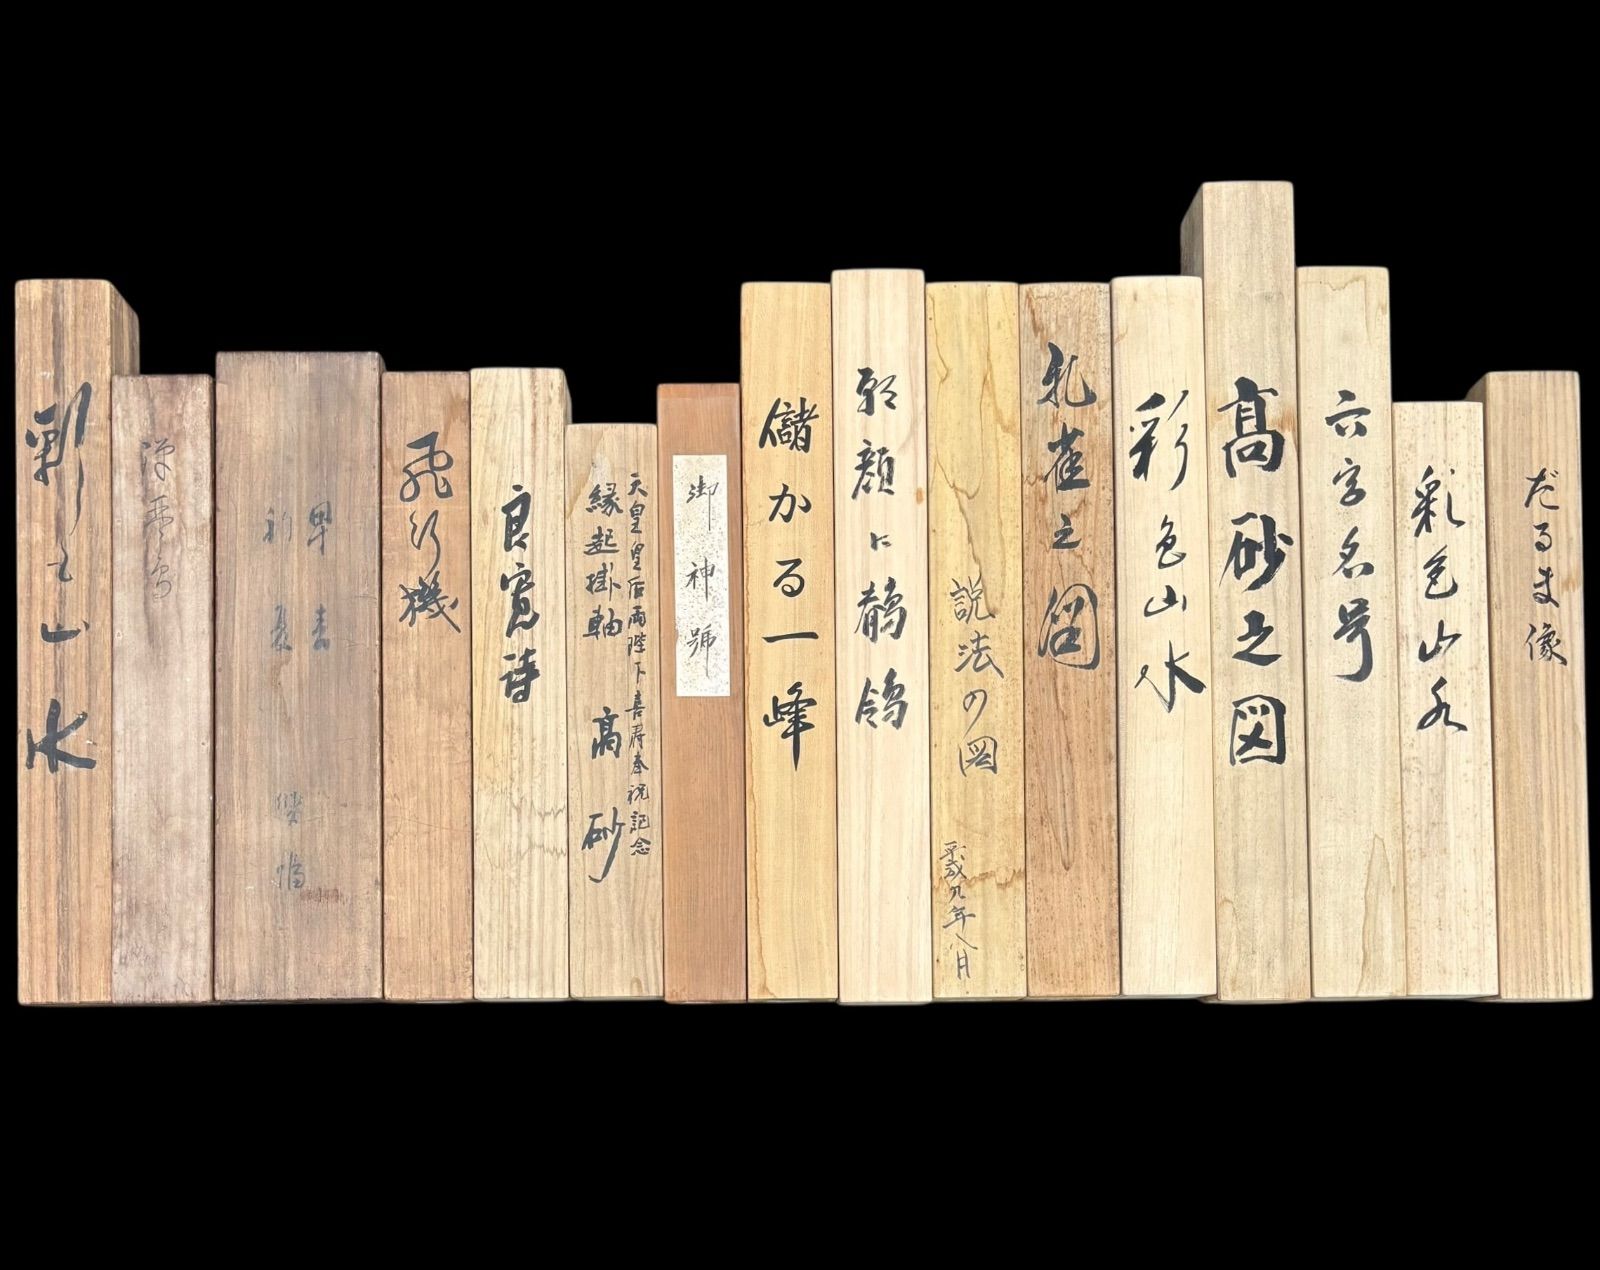 山水
飛行機
良寛詩
天皇皇后両陛下喜寿奉祝記念
縁起掛軸 高砂
御神號
儲かる一峰
顔に鶺鴒
説法の図
平成九年八月
孔雀之図
彩色山水
髙砂之図
六字名号
彩色山水
だるま像